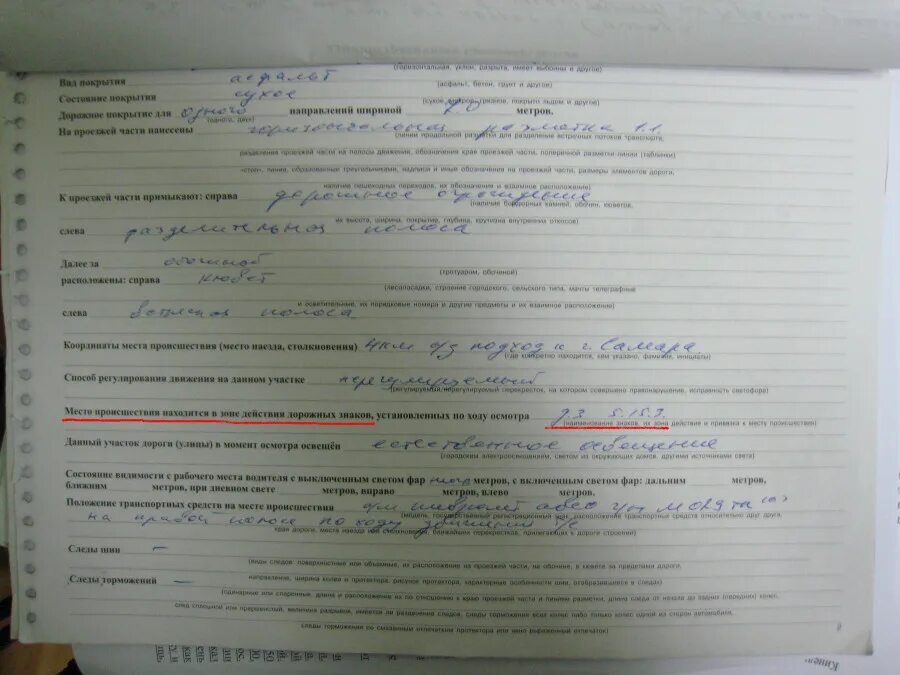 (горизонтальная, уклон, разрыта, имеет выбоины и другое)
Вид покрытия асфальт
(асфальт, бетон, грунт и другое)
Состояние покрытия сухое
(сухое, мокрое, покрыто льдом и другое)
Дорожное покрытие для одного направлений шириной 7,0 метров.
(одного, двух)
На проезжей части нанесены горизонтальная разметка 1.1
(линии продольной разметки для разделения встречных потоков транспорта,
разделения проезжей части на полосы движения, обозначения края проезжей части, поперечной разметки-линии (таблинки)
«стоп», линии, образованные треугольниками, надписи и иные обозначения на проезжей части, размеры элементов дороги,
наличие пешеходных переходов, их обозначения и взаимное расположение)
К проезжей части примыкают: справа дорожное ограждение
(наличие бордюрных камней, обочин, кюветов,
их высота, ширина, покрытие, глубина, крутизна внутренних откосов)
слева разделительная полоса
Далее за обочиной
(тротуаром, обочиной)
расположены: справа кювет
(лесопосадки, строение городского, сельского типа, мачты телеграфные
и осветительные, их порядковые номера и другие предметы и их взаимное расположение)
слева встречная полоса
Координаты места происшествия (место наезда, столкновения) 4 км а/д подход к г. Самара
(где конкретно находится, кем указано, фамилия, инициалы)
Способ регулирования движения на данном участке нерегулируемый
(регулируемый/нерегулируемый перекресток, на котором совершено правонарушение, исправность светофора)
Место происшествия находится в зоне действия дорожных знаков, установленных по ходу осмотра д.з 5.15.7.
(наименование знаков, их зона действие и привязка к месту происшествия)
Данный участок дороги (улицы) в момент осмотра освещён естественное освещение
(городским электроосвещением, светом из окружающих домов, другими источниками света)
Состояние видимости с рабочего места водителя с выключенным светом фар метров, с включенным светом фар: дальним метров,
ближним метров, при дневном свете метров, вправо метров, влево метров.
Положение транспортных средств на месте происшествия а/м шевролет авео
(модель, государственный регистрационный знак, расположение транспортных средств относительно друг друга,
на правой полосе по ходу движения т/с
края дороги, места наезда или столкновения, ближайшим перекрестков, прилегающих к дороге строений)
Следы шин –
(виды следов: поверхностные или объемные, их расположение на проезжей части, на обочине, в кювете за пределами дороги,
направление, ширина колеи и протектора, рисунок протектора, характерные особенности шин, отобразившиеся в следах)
Следы торможений —
(одинарные или спаренные, длина и расположение их по отношению к краю проезжей части и линиям разметки, длина следа от начала до задних (передних) колес,
след сплошной или прерывистый, величина разрывов, имеется ли раздвоение следов, следы торможения всех колес либо только колес одной из сторон автомобиля,
следы торможения со смазанным отпечатком протектора или явно выраженный отпечаток)